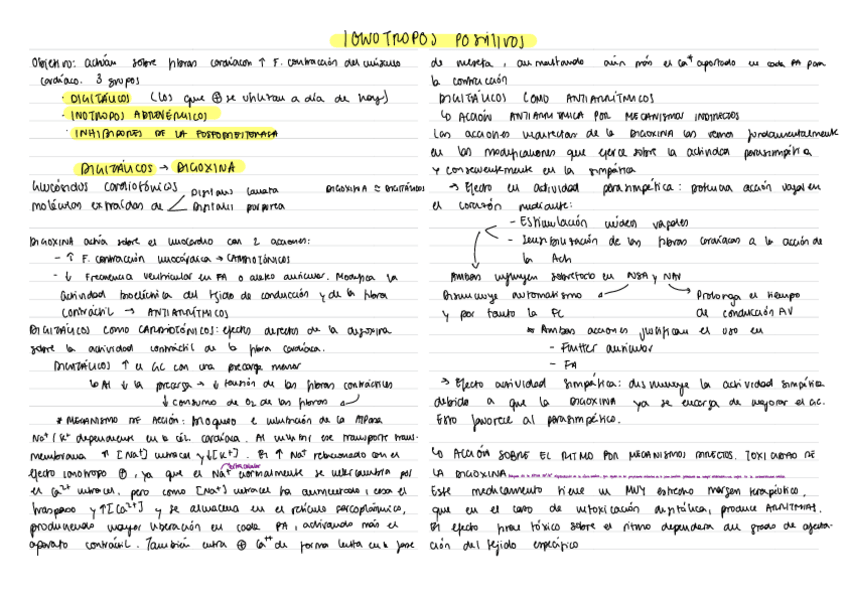 IONOTROPOS POSITIVOS
Objetivo: actúan sobre fibras cardiacas ↑ F. contracción del músculo
cardíaco. 3 grupos
· DIGITÁLICOS (los que ⊕ se utilizan a día de hoy)
· INOTROPOS ADRENÉRGICOS
· INHIBIDORES DE LA FOSFODIESTERASA
DIGITÁLICOS → DIGOXINA
Glucósidos cardiotónicos
moléculas extraídas de
Digitalis lanata
Digitalis purpurea
DIGOXINA = DIGITÁLICOS
DIGOXINA actúa sobre el miocardio con 2 acciones:
- ↑ F. contracción miocárdica → CARDIOTÓNICOS
- ↓ Frecuencia ventricular en FA o aleteo auricular. Modifica la
actividad bioeléctrica del tejido de conducción y de la fibra
contráctil → ANTIARRÍTMICOS
DIGITÁLICOS COMO CARDIOTÓNICOS: efectos directos de la digoxina
sobre la actividad contráctil de la fibra cardíaca.
DIGITÁLICOS ↑ el GC con una precarga menor
↳ Al ↓ la precarga → ↓ tensión de las fibras contráctiles
↓ consumo de O2 de las fibras
* MECANISMO DE ACCIÓN: Bloqueo e inhibición de la ATPasa
Na+/K+ dependiente en la cél. cardíaca. Al inhibir ese transporte trans-
membrana ↑ [Na+] intracel y ↓[K+]. El ↑ Na+ relacionado con el
efecto ionotropo ⊕, ya que el Na+ normalmente se intercambia por
el Ca2+ intracel, pero como [Na+] intracel ha aumentado, cesa el
traspaso y ↑[Ca2+] y se almacena en el retículo sarcoplásmico,
produciendo mayor liberación en cada PA, activando más el
aparato contráctil. También entra ⊕ Ca++ de forma lenta en la fase
de meseta, aumentando aún más el Ca+ aportado en cada PA para
la contracción
DIGITÁLICOS COMO ANTIARRÍTMICOS
↳ ACCIÓN ANTIARRÍTMICA POR MECANISMOS INDIRECTOS
Las acciones indirectas de la DIGOXINA las vemos fundamentalmente
en las modificaciones que ejerce sobre la actividad parasimpática
y consecuentemente en la simpática
→ Efecto en actividad parasimpática: potencia acción vagal en
el corazón mediante:
- Estimulación núcleos vagales
- Sensibilización de las fibras cardíacas a la acción de
la Ach
Ambas influyen sobretodo en NSA y NAV
Disminuye automatismo
y por tanto la FC
Prolonga el tiempo
de conducción AV
* Ambas acciones justifican el uso en
- Flutter auricular
- FA
→ Efecto actividad simpática: disminuye la actividad simpática
debido a que la DIGOXINA ya se encarga de mejorar el GC.
Esto favorece al parasimpático.
↳ ACCIÓN SOBRE EL RITMO POR MECANISMOS DIRECTOS. TOXICIDAD DE
LA DIGOXINA
Este medicamento tiene un MUY estrecho margen terapéutico,
que en el caso de intoxicación digitálica, produce ARRITMIAS.
El efecto tóxico sobre el ritmo dependerá del grado de afecta-
ción del tejido específico